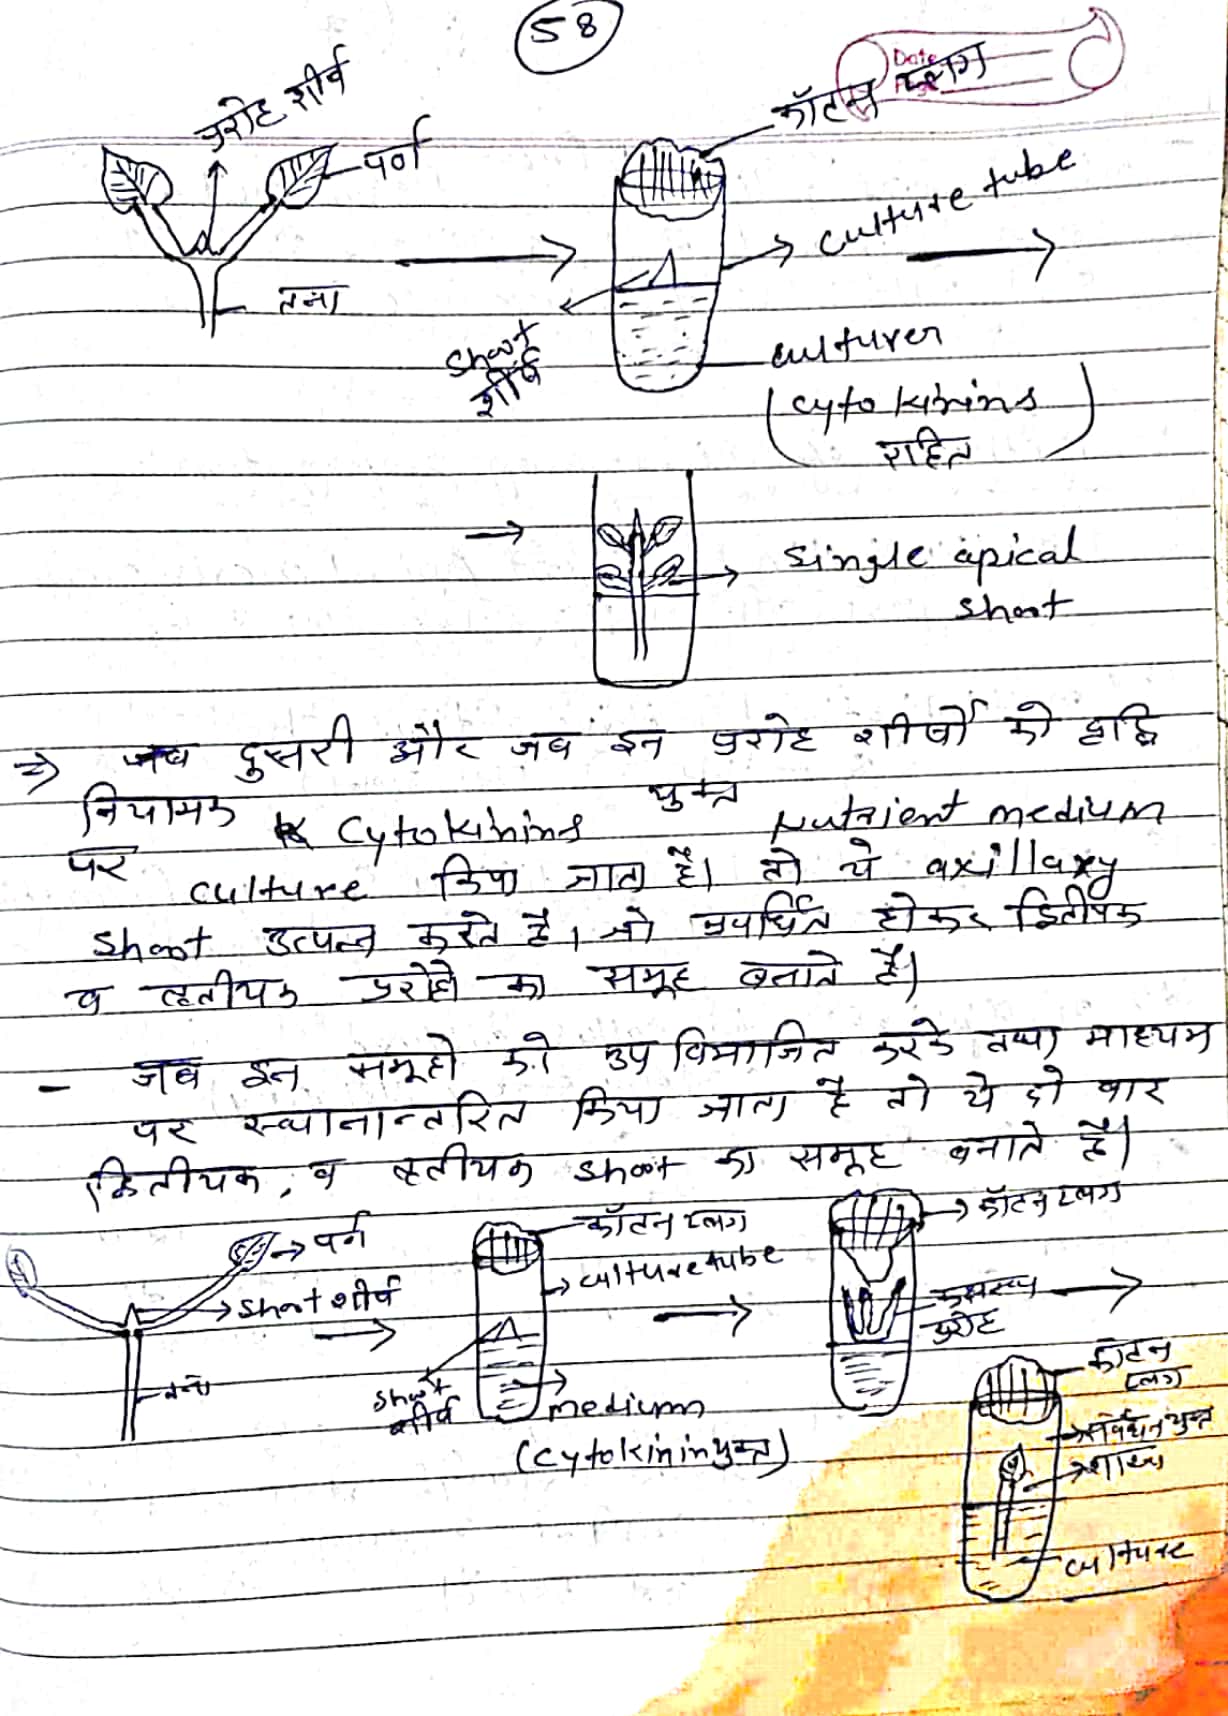 58
Date
Page
प्ररोह शीर्ष
पर्ण
तना
कॉटन प्लग
culture tube
shoot
शीर्ष
culturer
(cytokinins
रहित)
single apical
shoot
⇒ जब दुसरी और जब इन प्ररोह शीर्षो को वृद्धि
नियामक cytokinins युक्त Nutrient medium
पर culture किया जाता है। तो ये axillaxy
shoot उत्पन्न करते है, जो प्रवर्धित होकर द्वितीयक
व तृतीयक प्ररोहो का समूह बनाते है।
- जब इन समूहो को उप विभाजित करके तथा माध्यम
पर स्थानान्तरित किया जाता है तो ये दो बार
द्वितीयक, व तृतीयक shoot का समूह बनाते है।
पर्ण
shoot शीर्ष
तना
कॉटन प्लग
culture tube
shoot
शीर्ष
medium
(cytokinin युक्त)
कॉटन प्लग
प्ररोह
कॉटन
प्लग
संवर्धन युक्त
शाखा
culture